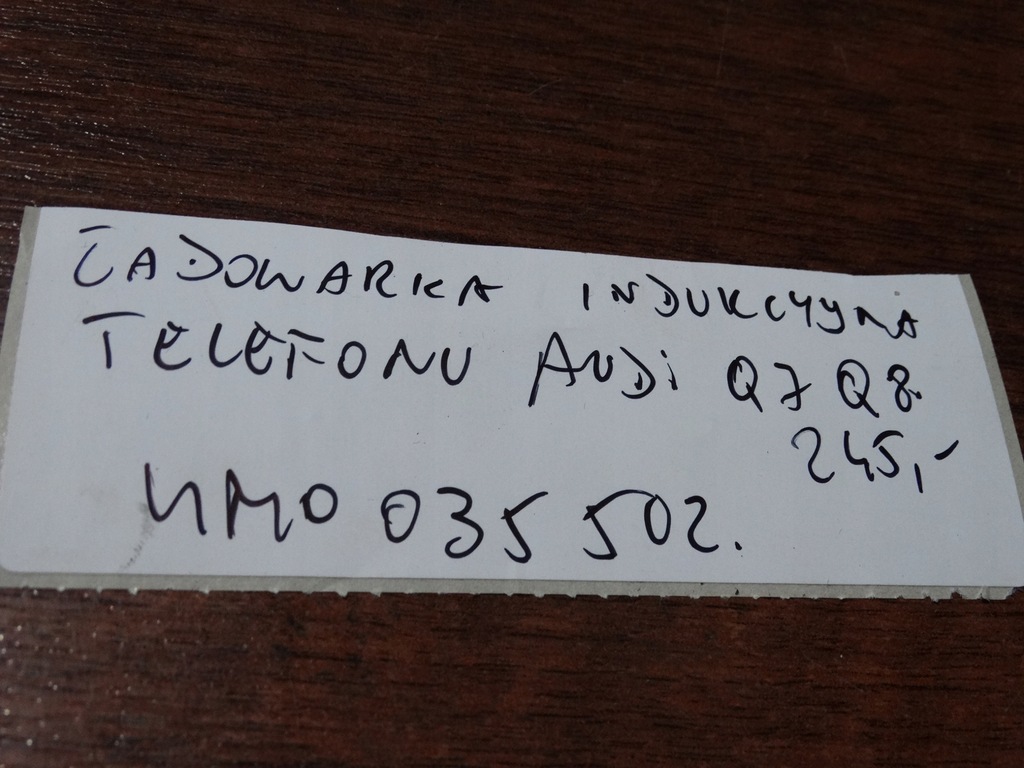 ŁADOWARKA INDUKCYJNA
TELEFONU AUDI Q7 Q8
245,-
4M0 035 502.